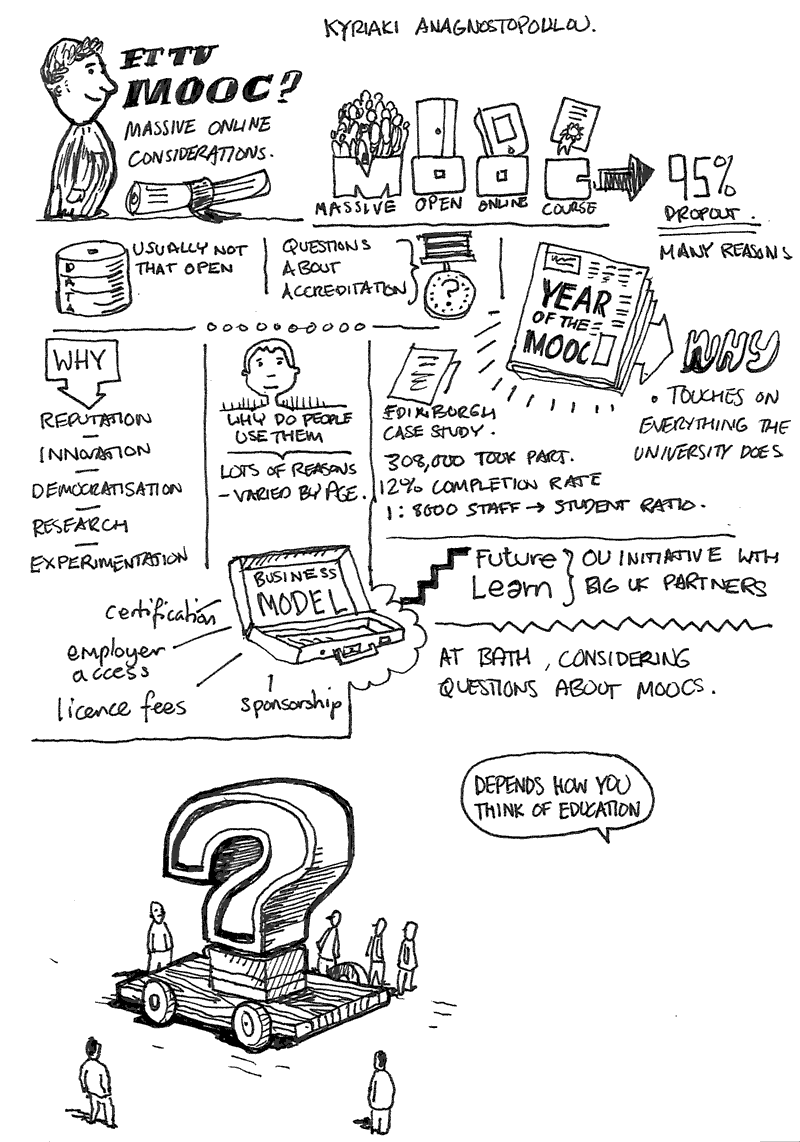 KYRIAKI ANAGNOSTOPOULOU.
ET TU
MOOC?
MASSIVE ONLINE
CONSIDERATIONS.
MASSIVE
OPEN
ONLINE
COURSE
95%
DROPOUT.
MANY REASONS
DATA
USUALLY NOT
THAT OPEN
QUESTIONS
ABOUT
ACCREDITATION
?
YEAR
OF THE
MOOC
WHY
• TOUCHES ON
EVERYTHING THE
UNIVERSITY DOES
WHY
REPUTATION
INNOVATION
DEMOCRATISATION
RESEARCH
EXPERIMENTATION
WHY DO PEOPLE
USE THEM
LOTS OF REASONS
- VARIED BY AGE.
EDINBURGH
CASE STUDY.
308,000 TOOK PART.
12% COMPLETION RATE
1:8600 STAFF → STUDENT RATIO.
Future
Learn
OU INITIATIVE WTH
BIG UK PARTNERS
BUSINESS
MODEL
certification
employer
access
licence fees
sponsorship
AT BATH, CONSIDERING
QUESTIONS ABOUT MOOCS.
DEPENDS HOW YOU
THINK OF EDUCATION
?